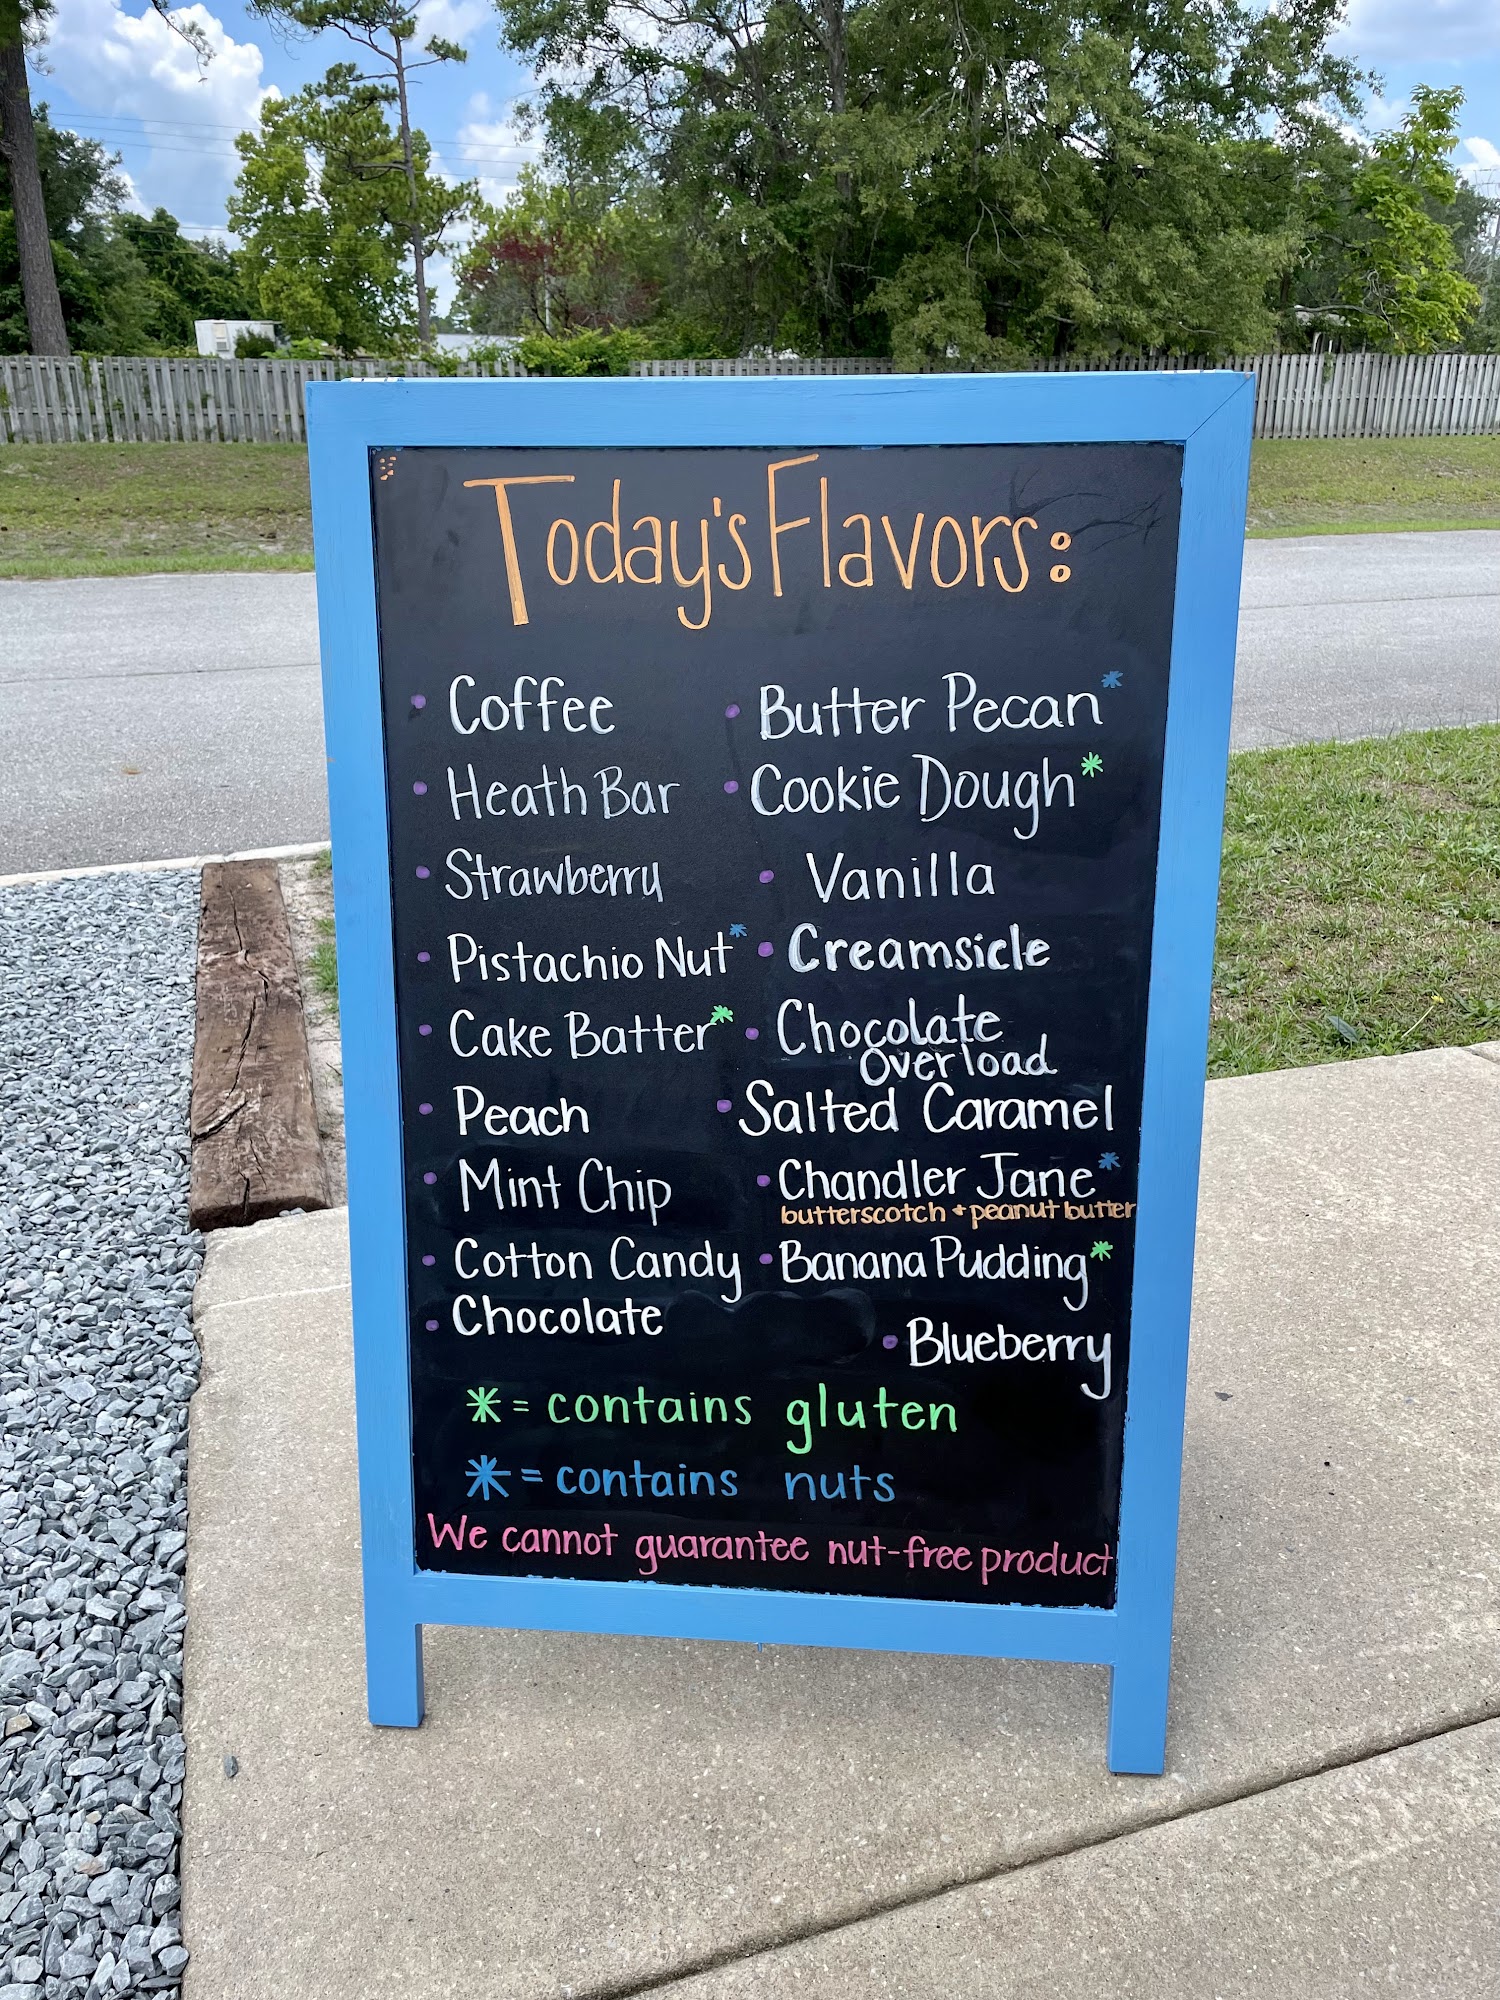 Today's Flavors:
• Coffee
• Heath Bar
• Strawberry
• Pistachio Nut*
• Cake Batter*
• Peach
• Mint Chip
• Cotton Candy
• Chocolate
• Butter Pecan*
• Cookie Dough*
• Vanilla
• Creamsicle
• Chocolate
Overload
• Salted Caramel
• Chandler Jane*
butterscotch + peanut butter
• Banana Pudding*
• Blueberry
* = contains gluten
* = contains nuts
We cannot guarantee nut-free product